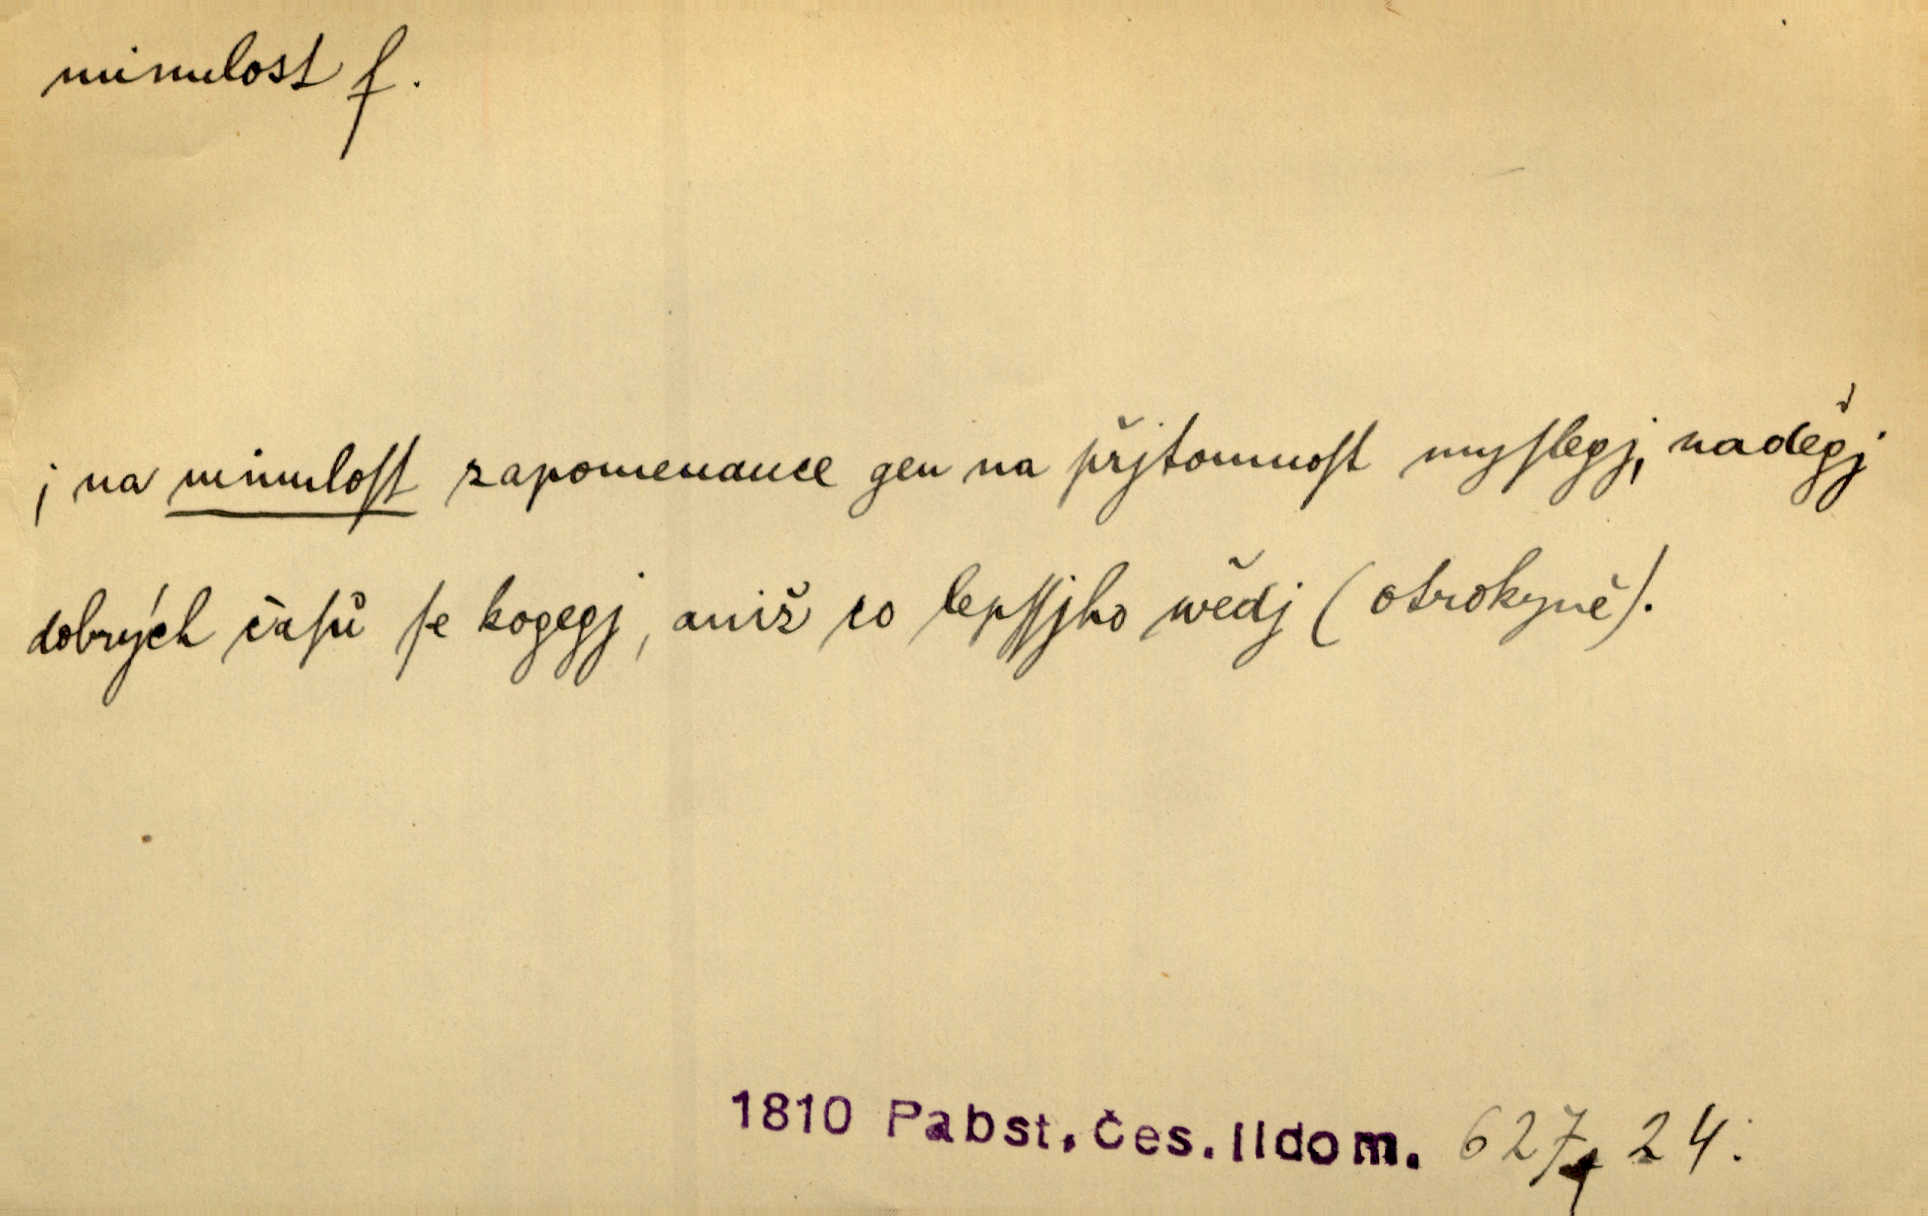 minulost f.
j na minuloſt zapomenauce gen na přjtomnoſt myſlegj, naděgj
dobrých čaſů ſe kogegj, aniž co lepſſjho wědj (otrokyně).
1810 Pabst, čes. lidom. 627, 24.